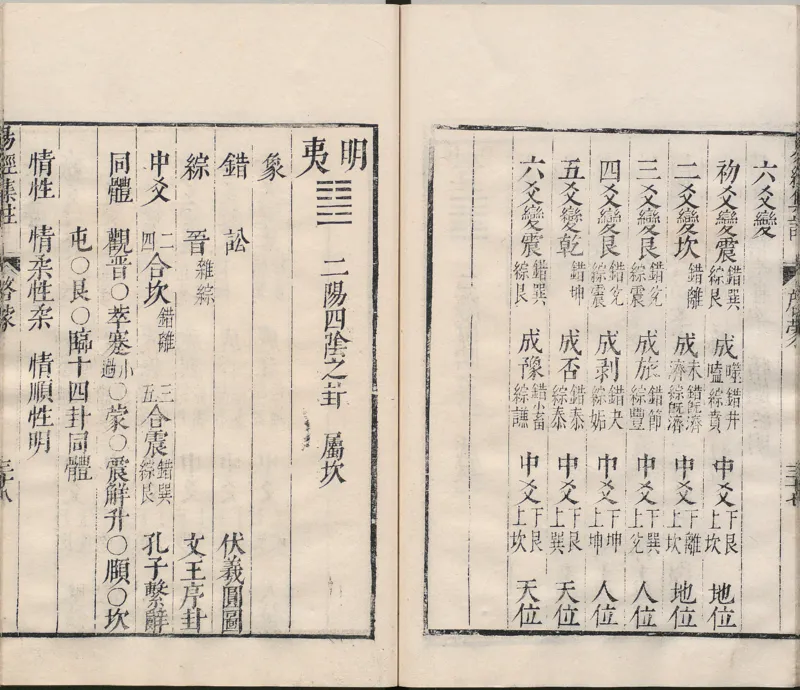 六爻變
初爻變震 錯巽綜艮 成噬嗑 錯井綜賁 中爻 下艮上坎 地位
二爻變坎 錯離 成未濟 錯既濟綜既濟 中爻 下離上坎 地位
三爻變艮 錯兌綜震 成旅 錯節綜豐 中爻 下巽上兌 人位
四爻變艮 錯兌綜震 成剥 錯夬綜姤 中爻 下坤上坤 人位
五爻變乾 錯坤 成否 錯泰綜泰 中爻 下艮上巽 天位
六爻變震 錯巽綜艮 成豫 錯小畜綜謙 中爻 下艮上坎 天位
明夷 二陽四陰之卦 屬坎
象
錯 訟 伏羲圓圖
綜 晉 雜綜 文王序卦
中爻 二四合坎 錯離 三五合震 錯巽綜艮 孔子繫辭
同體 觀晉○萃蹇小過○蒙○震解升○頤○坎
屯○艮○臨十四卦同體
情性 情柔性柔 情順性明
易經集註 啓蒙 三十八